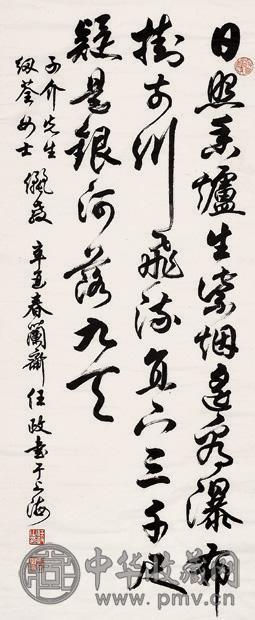 日照香爐生紫烟遥看瀑布
掛前川飛流直下三千尺
疑是銀河落九天
子介先生
紉荃女士
儷教
辛酉春蘭齋任政書于上海
中华收藏网
www.pmv.cn